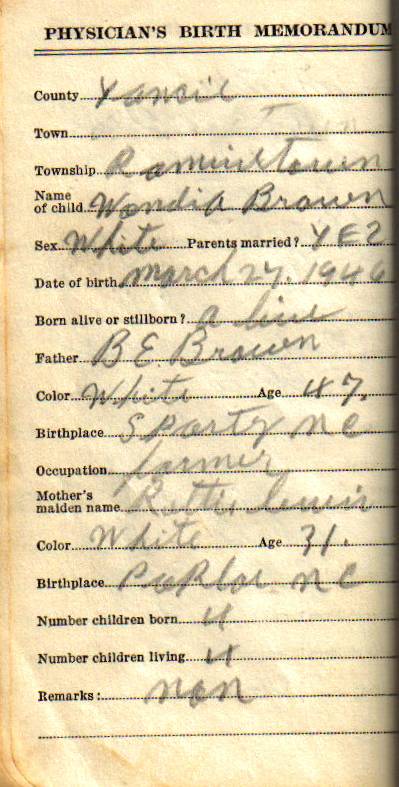 PHYSICIAN'S BIRTH MEMORANDUM
County Yancie
Town
Township Raminetown
Name
of child Wondia Brown
Sex White Parents married? YES
Date of birth March 27. 1946
Born alive or stillborn? a live
Father B E. Brown
Color White Age 47.
Birthplace Sparty N C
Occupation farmer
Mother's
maiden name Lewis
Color White Age 31.
Birthplace N C
Number children born 4
Number children living 4
Remarks: non